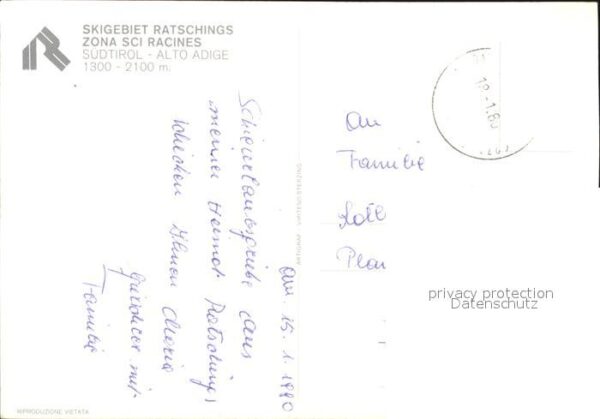 SKIGEBIET RATSCHINGS
ZONA SCI RACINES
SÜDTIROL - ALTO ADIGE
1300 - 2100 m.
am. 15. 1. 1980
aus
meiner Heimat Ratschings
schicken Ihnen Maria
mit
Familie
RIPRODUZIONE VIETATA
ARTIGRAF - VIPITENO/STERZING
18-1.80
An
Familie
privacy protection
Datenschutz